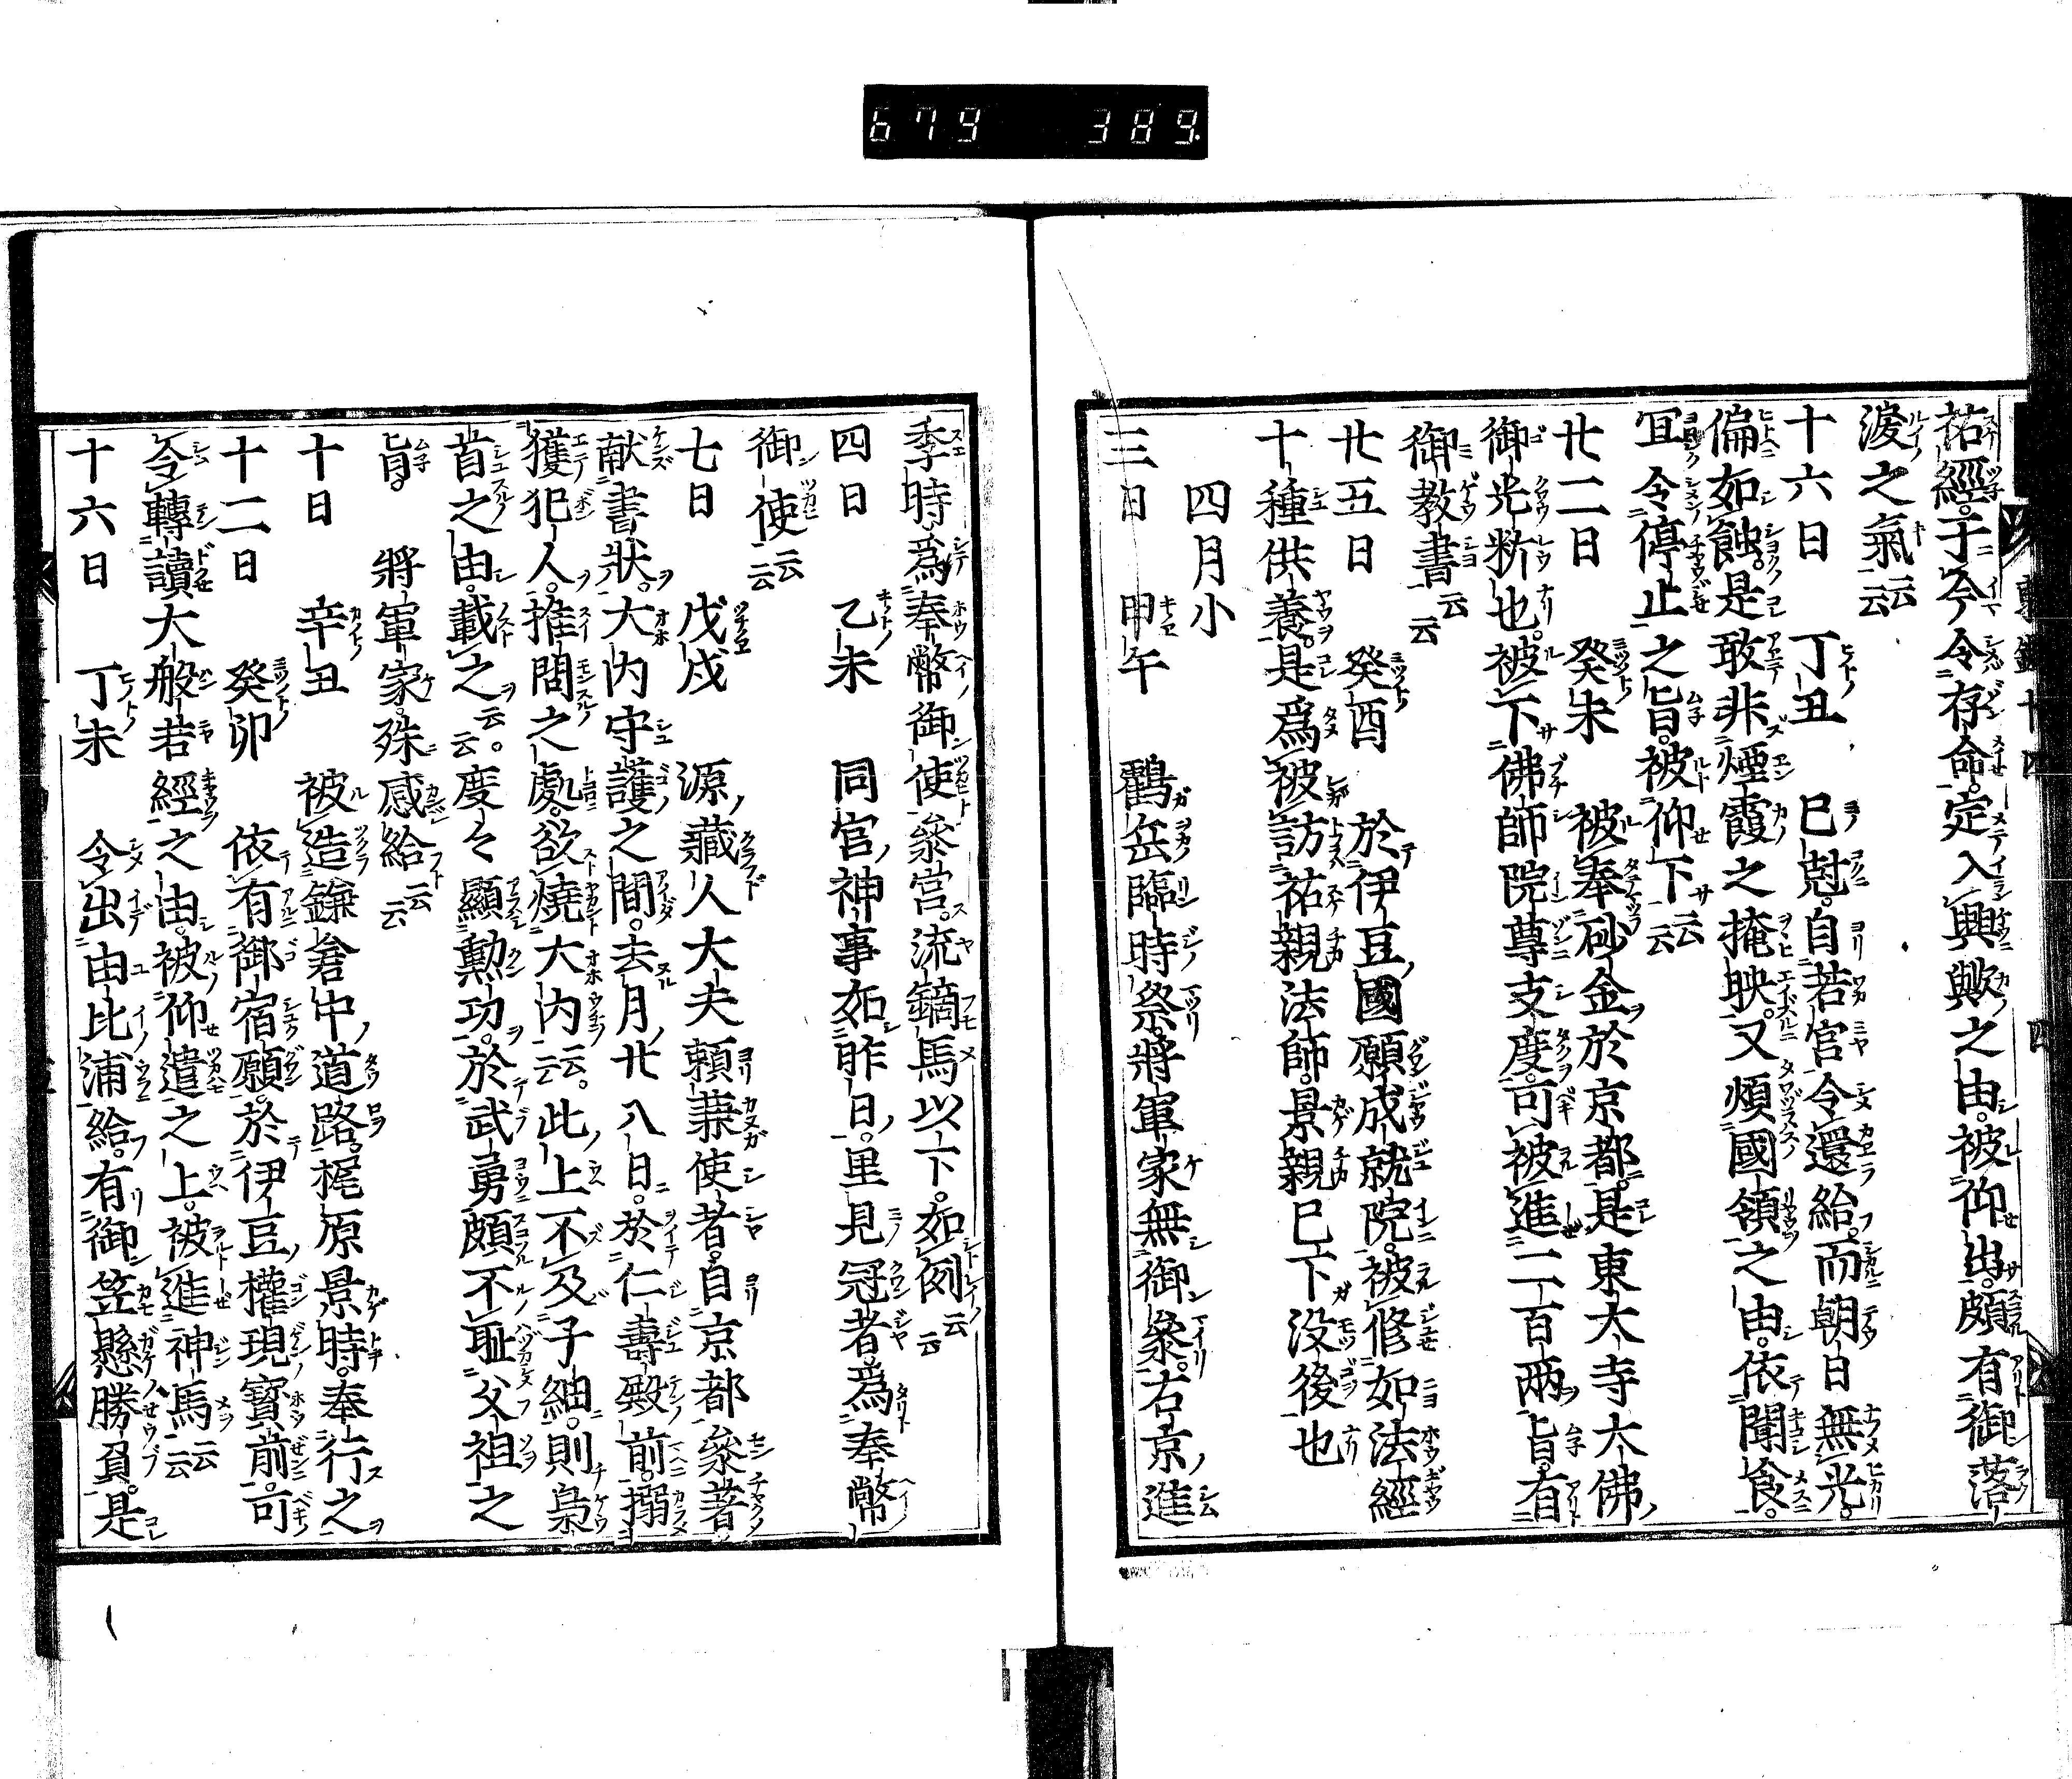 679 389
祐經于今令存命定入興歟之由被仰出頗有御落
淚之氣云云
十六日 丁丑 巳尅自若宮令還給而朝日無光
偏如蝕是敢非煙霞之掩映又煩國領之由依聞食
冝令停止之旨被仰下云云
廿二日 癸未 被奉砂金於京都是東大寺大佛
御光䉼也被下佛師院尊支度可被進二百兩旨有
御教書云云
廿五日 癸酉 於伊豆國願成就院被修如法經
十種供養是爲被訪祐親法師景親已下没後也
四月小
三日 甲午 鶴岳臨時祭將軍家無御參右京進
季時爲奉幣御使參宮流鏑馬以下如例云云
四日 乙未 同宮神事如昨日里見冠者爲奉幣
御使云云
七日 戊戌 源藏人大夫頼兼使者自京都參著
献書狀大内守護之間去月廿八日於仁壽殿前搦
獲犯人推問之處欲燒大内云云此上不及子細則梟
首之由載之云云度々顯勲功於武勇頗不耻父祖之
旨將軍家殊感給云云
十日 辛丑 被造鎌倉中道路梶原景時奉行之
十二日 癸卯 依有御宿願於伊豆權現寳前可
令轉讀大般若經之由被仰遣之上被進神馬云云
十六日 丁未 令出由比浦給有御笠懸勝負是